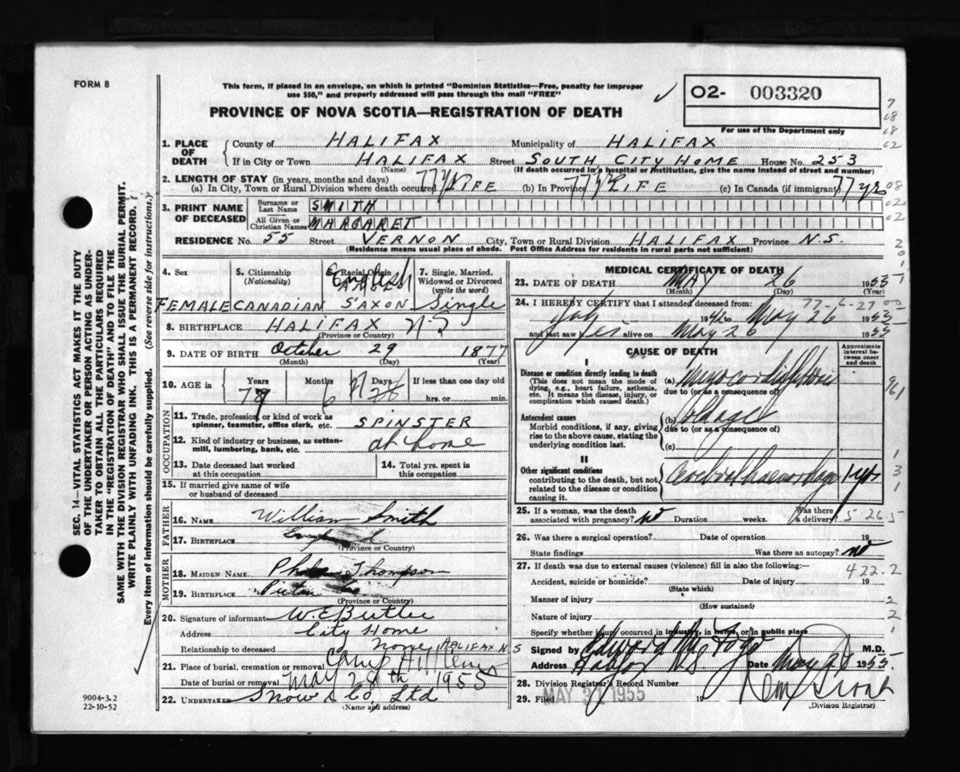 FORM 8
This form, if placed in an envelope, on which is printed "Dominion Statistics—Free, penalty for improper
use $50," and properly addressed will pass through the mail "FREE"
✓ O2- 003320
For use of the Department only
PROVINCE OF NOVA SCOTIA—REGISTRATION OF DEATH
1. PLACE OF DEATH
County of HALIFAX Municipality of HALIFAX
If in City or Town HALIFAX Street SOUTH CITY HOME House No. 253
(Name) (If death occurred in a hospital or institution, give the name instead of street and number)
2. LENGTH OF STAY (in years, months and days)
(a) In City, Town or Rural Division where death occurred 77 y LIFE (b) In Province 77 y LIFE (c) In Canada (if immigrant) 77 yrs
3. PRINT NAME OF DECEASED
Surname or Last Name SMITH
All Given or Christian Names MARGARET
RESIDENCE NO. 55 Street VERNON City, Town or Rural Division HALIFAX Province N.S.
(Residence means usual place of abode. Post Office Address for residents in rural parts not sufficient)
4. Sex
FEMALE
5. Citizenship
(Nationality)
CANADIAN
6. Racial Origin
SAXON
7. Single, Married, Widowed or Divorced
(write the word)
Single
8. BIRTHPLACE HALIFAX N S
(Province or Country)
9. DATE OF BIRTH October 29 1877
(Month) (Day) (Year)
10. AGE in Years Months Days If less than one day old
6
hrs. or min.
OCCUPATION
11. Trade, profession or kind of work as spinner, teamster, office clerk, etc. SPINSTER
12. Kind of industry or business, as cotton-mill, lumbering, bank, etc. at home
13. Date deceased last worked at this occupation
14. Total yrs. spent in this occupation
15. If married give name of wife or husband of deceased
FATHER
16. NAME William Smith
17. BIRTHPLACE
(Province or Country)
MOTHER
18. MAIDEN NAME Thompson
19. BIRTHPLACE Pictou
(Province or Country)
20. Signature of informant W. E. Butler
Address City Home
Relationship to deceased none HALIFAX N.S
21. Place of burial, cremation or removal Camp Hill Cem
Date of burial or removal May 28th 1955
22. UNDERTAKER Snow & Co. Ltd
(Name and Address)
MEDICAL CERTIFICATE OF DEATH
23. DATE OF DEATH MAY 26 1955
(Month) (Day)
24. I HEREBY CERTIFY that I attended deceased from
May 26 1955
and last saw alive on May 26 1955
CAUSE OF DEATH
Approximate interval between onset and death
I
Disease or condition directly leading to death
(This does not mean the mode of dying, e.g., heart failure, asthenia, etc. It means the disease, injury, or complication which caused death.)
(a)
due to (or as a consequence of)
Antecedent causes
Morbid conditions, if any, giving rise to the above cause, stating the underlying condition last.
(b) old age
due to (or as a consequence of)
(c)
II
Other significant conditions
contributing to the death, but not related to the disease or condition causing it.
Cerebral haemorrhage 1 yr
25. If a woman, was the death associated with pregnancy? no Duration weeks. Was there a delivery?
26. Was there a surgical operation? Date of operation 19
State findings Was there an autopsy? no
27. If death was due to external causes (violence) fill in also the following:—
422.2
Accident, suicide or homicide? Date of injury 19
(State which)
Manner of injury
(How sustained)
Nature of injury
Specify whether injury occurred in industry, in home, or in public place
Signed by Edward M.D.
Address N.S. Date May 1955
28. Division Registrar's Record Number
29. Filed MAY 31 1955
(Division Registrar)
9004-3.2
22-10-52
SEC. 14—VITAL STATISTICS ACT MAKES IT THE DUTY
OF THE UNDERTAKER OR PERSON ACTING AS UNDER-
TAKER TO OBTAIN ALL THE PARTICULARS REQUIRED
IN THE "REGISTRATION OF DEATH" AND TO FILE THE
SAME WITH THE DIVISION REGISTRAR WHO SHALL ISSUE THE BURIAL PERMIT.
WRITE PLAINLY WITH UNFADING INK. THIS IS A PERMANENT RECORD.
Every item of information should be carefully supplied. (See reverse side for instructions.)